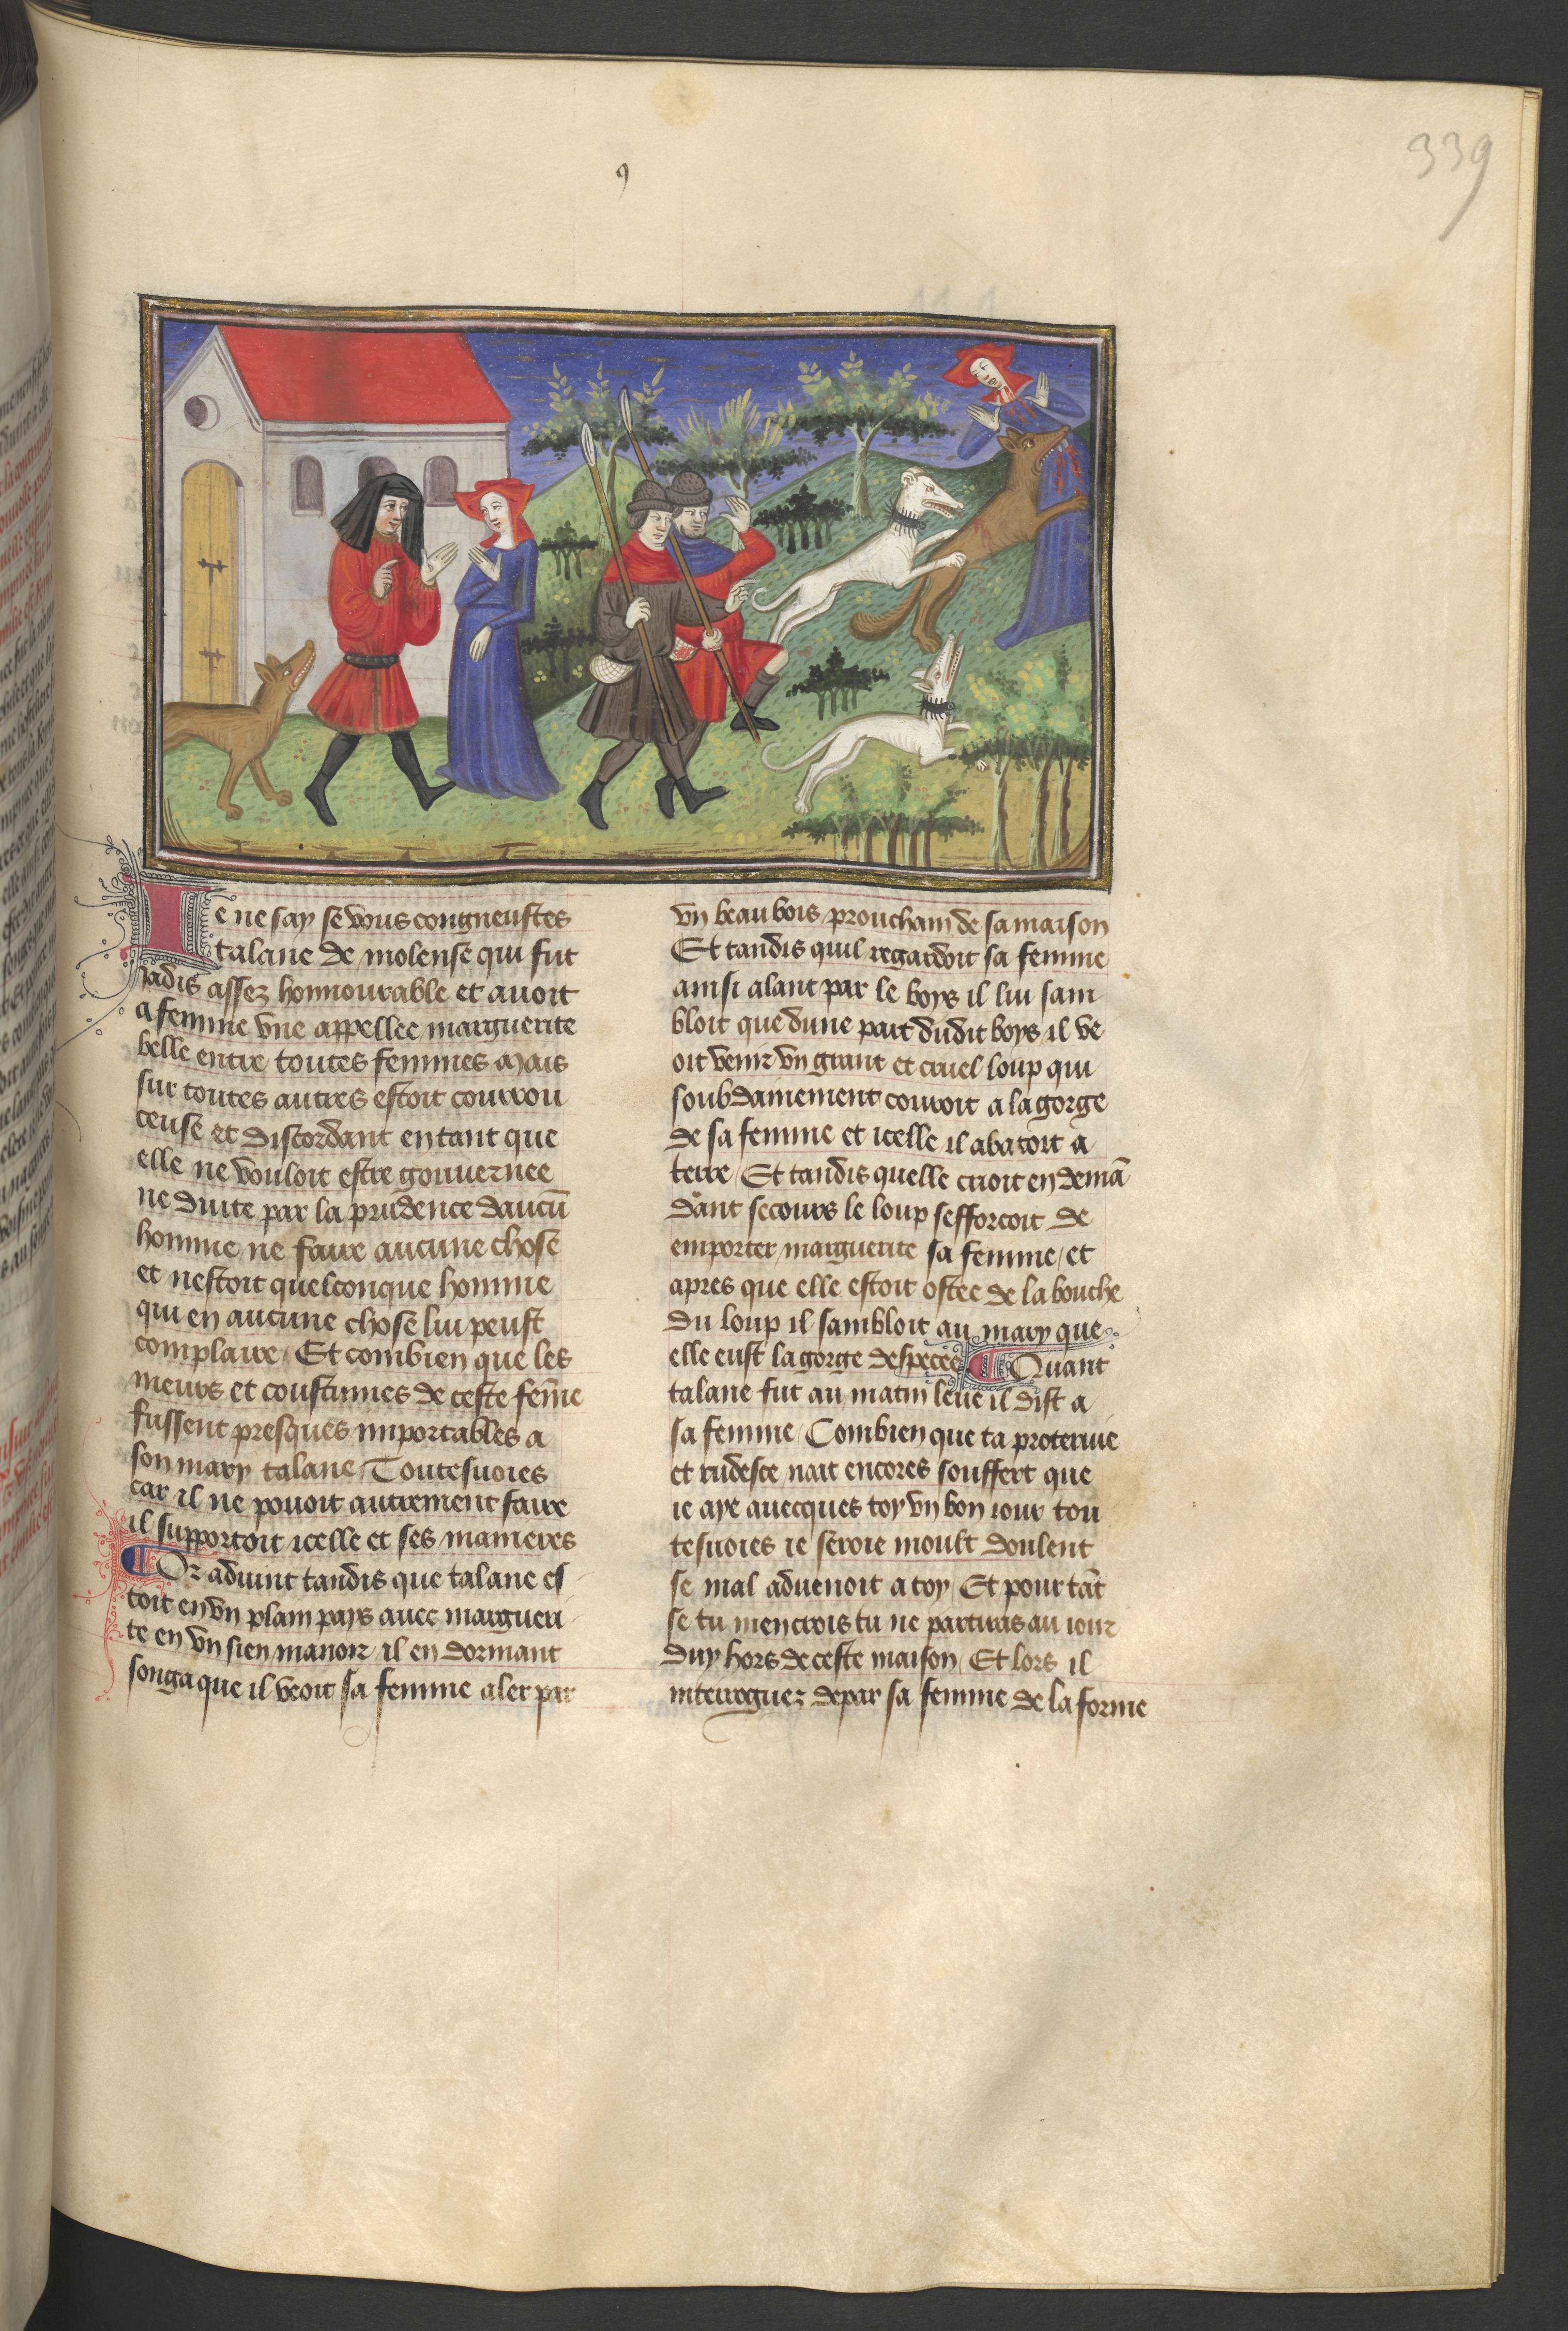 339
9
Ie ne say se vous congneustes
talane de molense qui fut
iadis assez honnourable et auoit
a femme vne appellee marguerite
belle entre toutes femmes Mais
sur toutes autres estoit courrou
ceuse et discordant en tant que
elle ne vouloit estre gouuernee
ne duite par la prudence daucū
homme ne faire aucune chose
et nestoit quelconque homme
qui en aucune chose lui peust
complaire / Et combien que les
meurs et coustumes de ceste fēme
fussent presques importables a
son mary talane / Toutesuoies
car il ne pouoit autrement faire
il supportoit icelle et ses manieres
¶ Or aduint tandis que talane es
toit en vn plain pays auec margueri
te en vn sien manoir / il en dormant
songa que il veoit sa femme aler par
vn beau bois / prouchain de sa maison
Et tandis quil regardoit sa femme
ainsi alant par le boys il lui sam
bloit que dune part dudit boys il ve
oit venir vn grant et cruel loup qui
soubdainement couroit a la gorge
de sa femme et icelle il abatoit a
terre / Et tandis quelle crioit en demā
dant secours le loup sefforcoit de
emporter marguerite sa femme / et
apres que elle estoit ostee de la bouche
du loup il sambloit au mary que
elle eust la gorge despecee ¶ Quant
talane fut au matin leue il dist a
sa femme / Combien que ta proteruie
et rudesce nait encores souffert que
ie aye auecques toy vn bon iour tou
tesuoies ie seroie moult doulent
se mal aduenoit a toy / Et pour tāt
se tu men crois tu ne partiras au iour
duy hors de ceste maison / Et lors il
interroguez depar sa femme de la forme